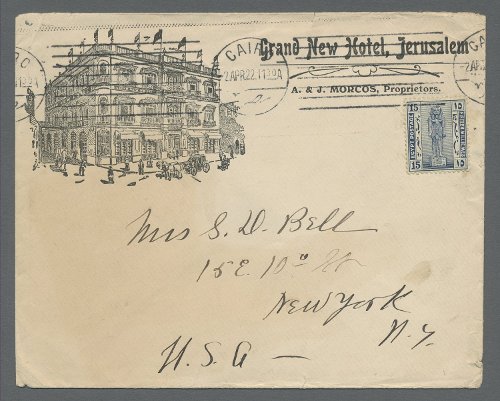 CAIRO
2 APR. 22. 11 30 A
Grand New Hotel, Jerusalem
A. & J. MORCOS, Proprietors.
15 ١٥
EGYPT POSTAGE
15 ١٥
Mrs S. D. Bell
15 E. 10th St
New York
N.Y.
U.S.A —